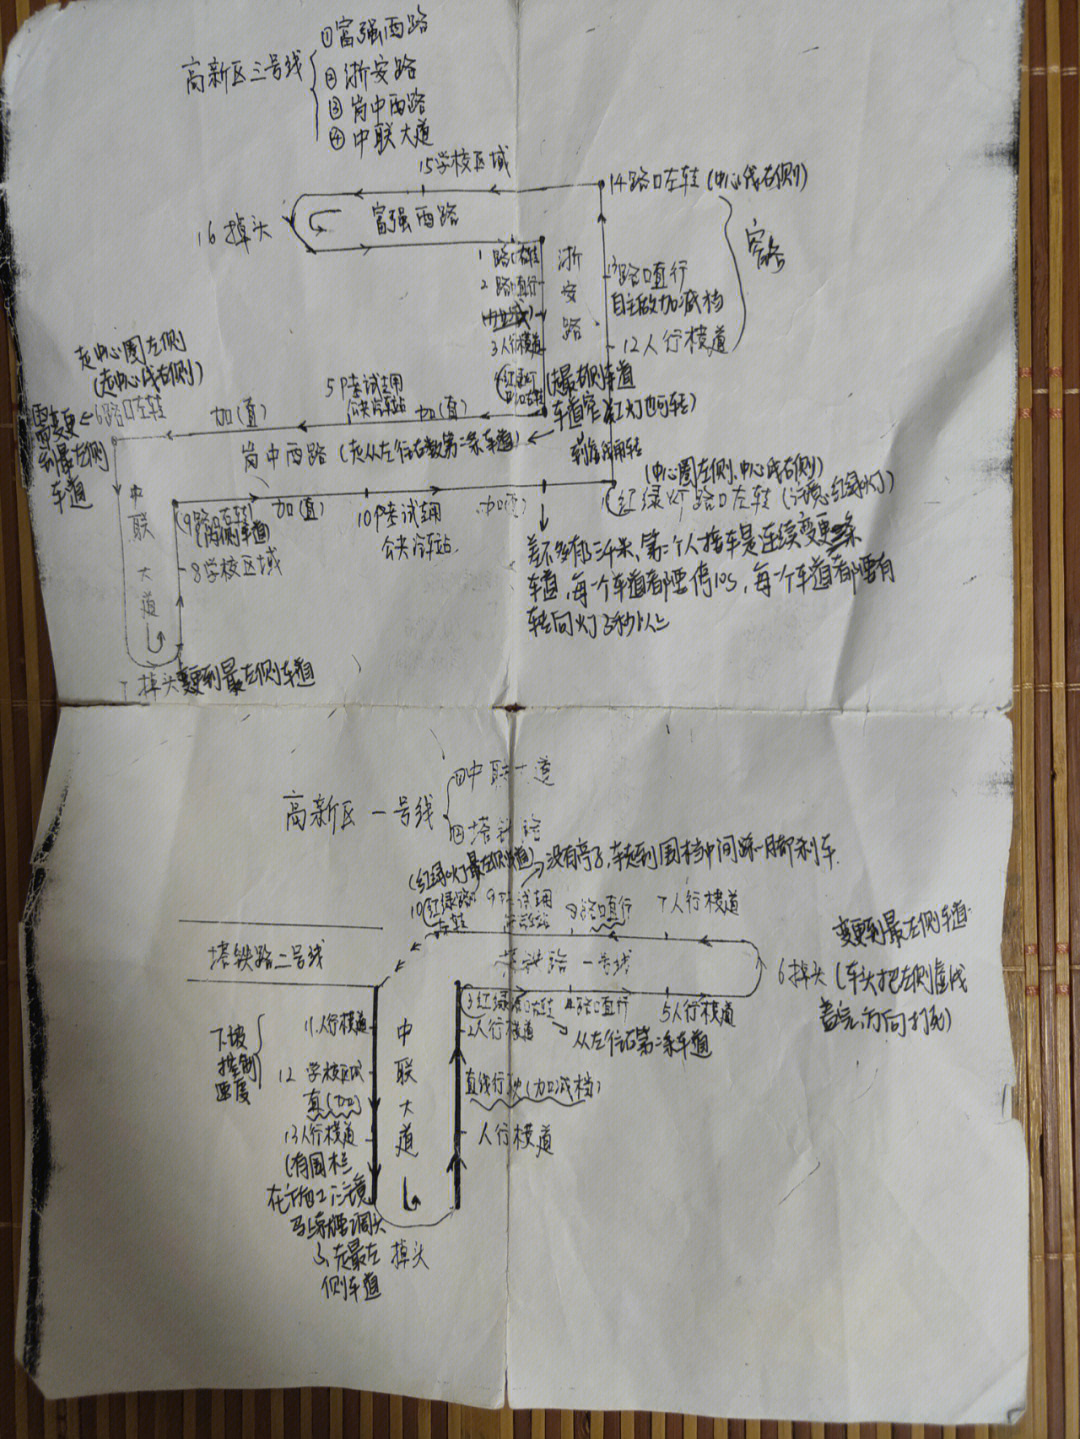 高新区三号线
①富强西路
②浙安路
③岗中西路
④中联大道
15学校区域
14路口左转(中心线右侧)
富强西路
16掉头
1路口右转
2路口直行
3人行横道
浙安路
13路口直行
自主做加减档
12人行横道
窄路
走中心圈左侧
(走中心线右侧)
6路口左转
需变更
到最左侧
车道
加(直)
5P类试用
公共汽车站
加(直)
(走最右侧车道
车道窄 红灯也可转)
岗中西路(走从左往右数第二条车道)
(中心圈左侧、中心线右侧)
红绿灯路口左转(注意红绿灯)
中联大道
9路口右转
8学校区域
加(直)
10P类试用
公共汽车站
加(直)
差不多有三千米、第二个人接车是连续变更条
车道,每一个车道都要停10S,每一个车道都要有
转向灯3秒以上
7掉头变更到最左侧车道
高新区一号线
①中联大道
②塔铁路
(红绿灯最左侧车道)
没有亭子,车走到围档中间踩一脚刹车.
10红绿路口
左转
9P类试用
8路口直行
7人行横道
变更到最左侧车道
塔铁路二号线
塔铁路一号线
6掉头(车头把左侧虚线
盖完,方向打死)
3红绿路口右转
4路口直行
5人行横道
2人行横道
从左往右第二条车道
下坡
控制
速度
11人行横道
12学校区域
直(加)
13人行横道
(有围栏
中联大道
直线行驶(加减档)
人行横道
马上就要调头
走最左
侧车道
掉头